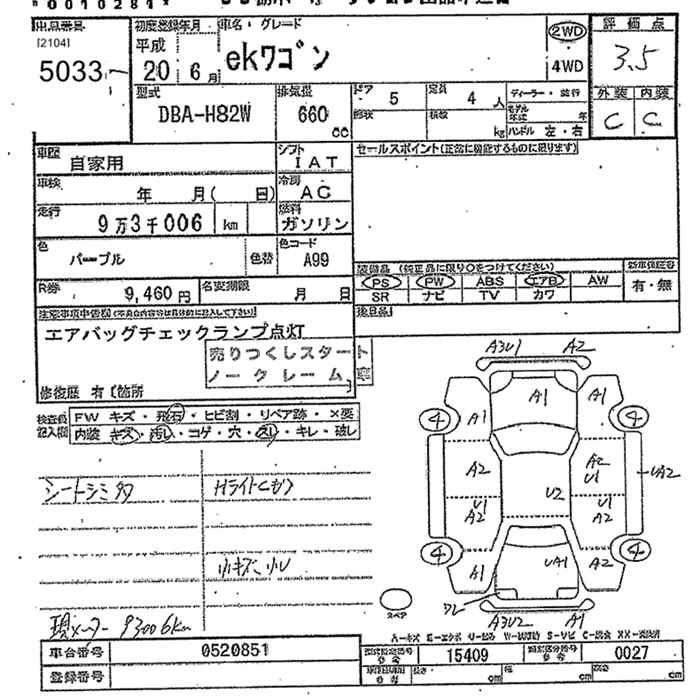 出品番号 初度登録年月 車名・グレード 2WD 評価点
[2104] 平成 ekワゴン 3.5
5033 20 6月 4WD
型式 排気量 ドア 5 定員 4人 ディーラー・並行 外装 内装
DBA-H82W 660 cc 形状 積載 kg モデル年式 年 C C
ハンドル 左・右
車歴 自家用 シフト IAT セールスポイント(正常に機能するものに限ります)
車検 年 月( 日) 冷房 AC
走行 9万3千006 km 燃料 ガソリン
色 パープル 色替 色コード A99
装備品 (純正品に限り○をつけてください) 新車保証書
R券 9,460円 名変期限 月 日 PS PW ABS エアB AW 有・無
SR ナビ TV カワ
注意事項申告欄 後日品
エアバッグチェックランプ点灯
売りつくしスタート
ノークレーム
修復歴 有 [箇所
検査員 FW キズ・飛石・ヒビ割・リペア跡・×要
記入欄 内装 キズ・汚レ・コゲ・穴・スレ・キレ・破レ
A3U1 A2
A1 A1 A1
4 4
A2 A2 U1 UA2
U2
U1 A2 U1 A2
4 4
A1 UA1 A2
スペア
A3U2 A1
シートシミ多 Hライトヒカリ
小キズ、小U
現メーター 93006km
車台番号 0520851 15409 0027
登録番号 長さ cm 幅 cm 高さ cm